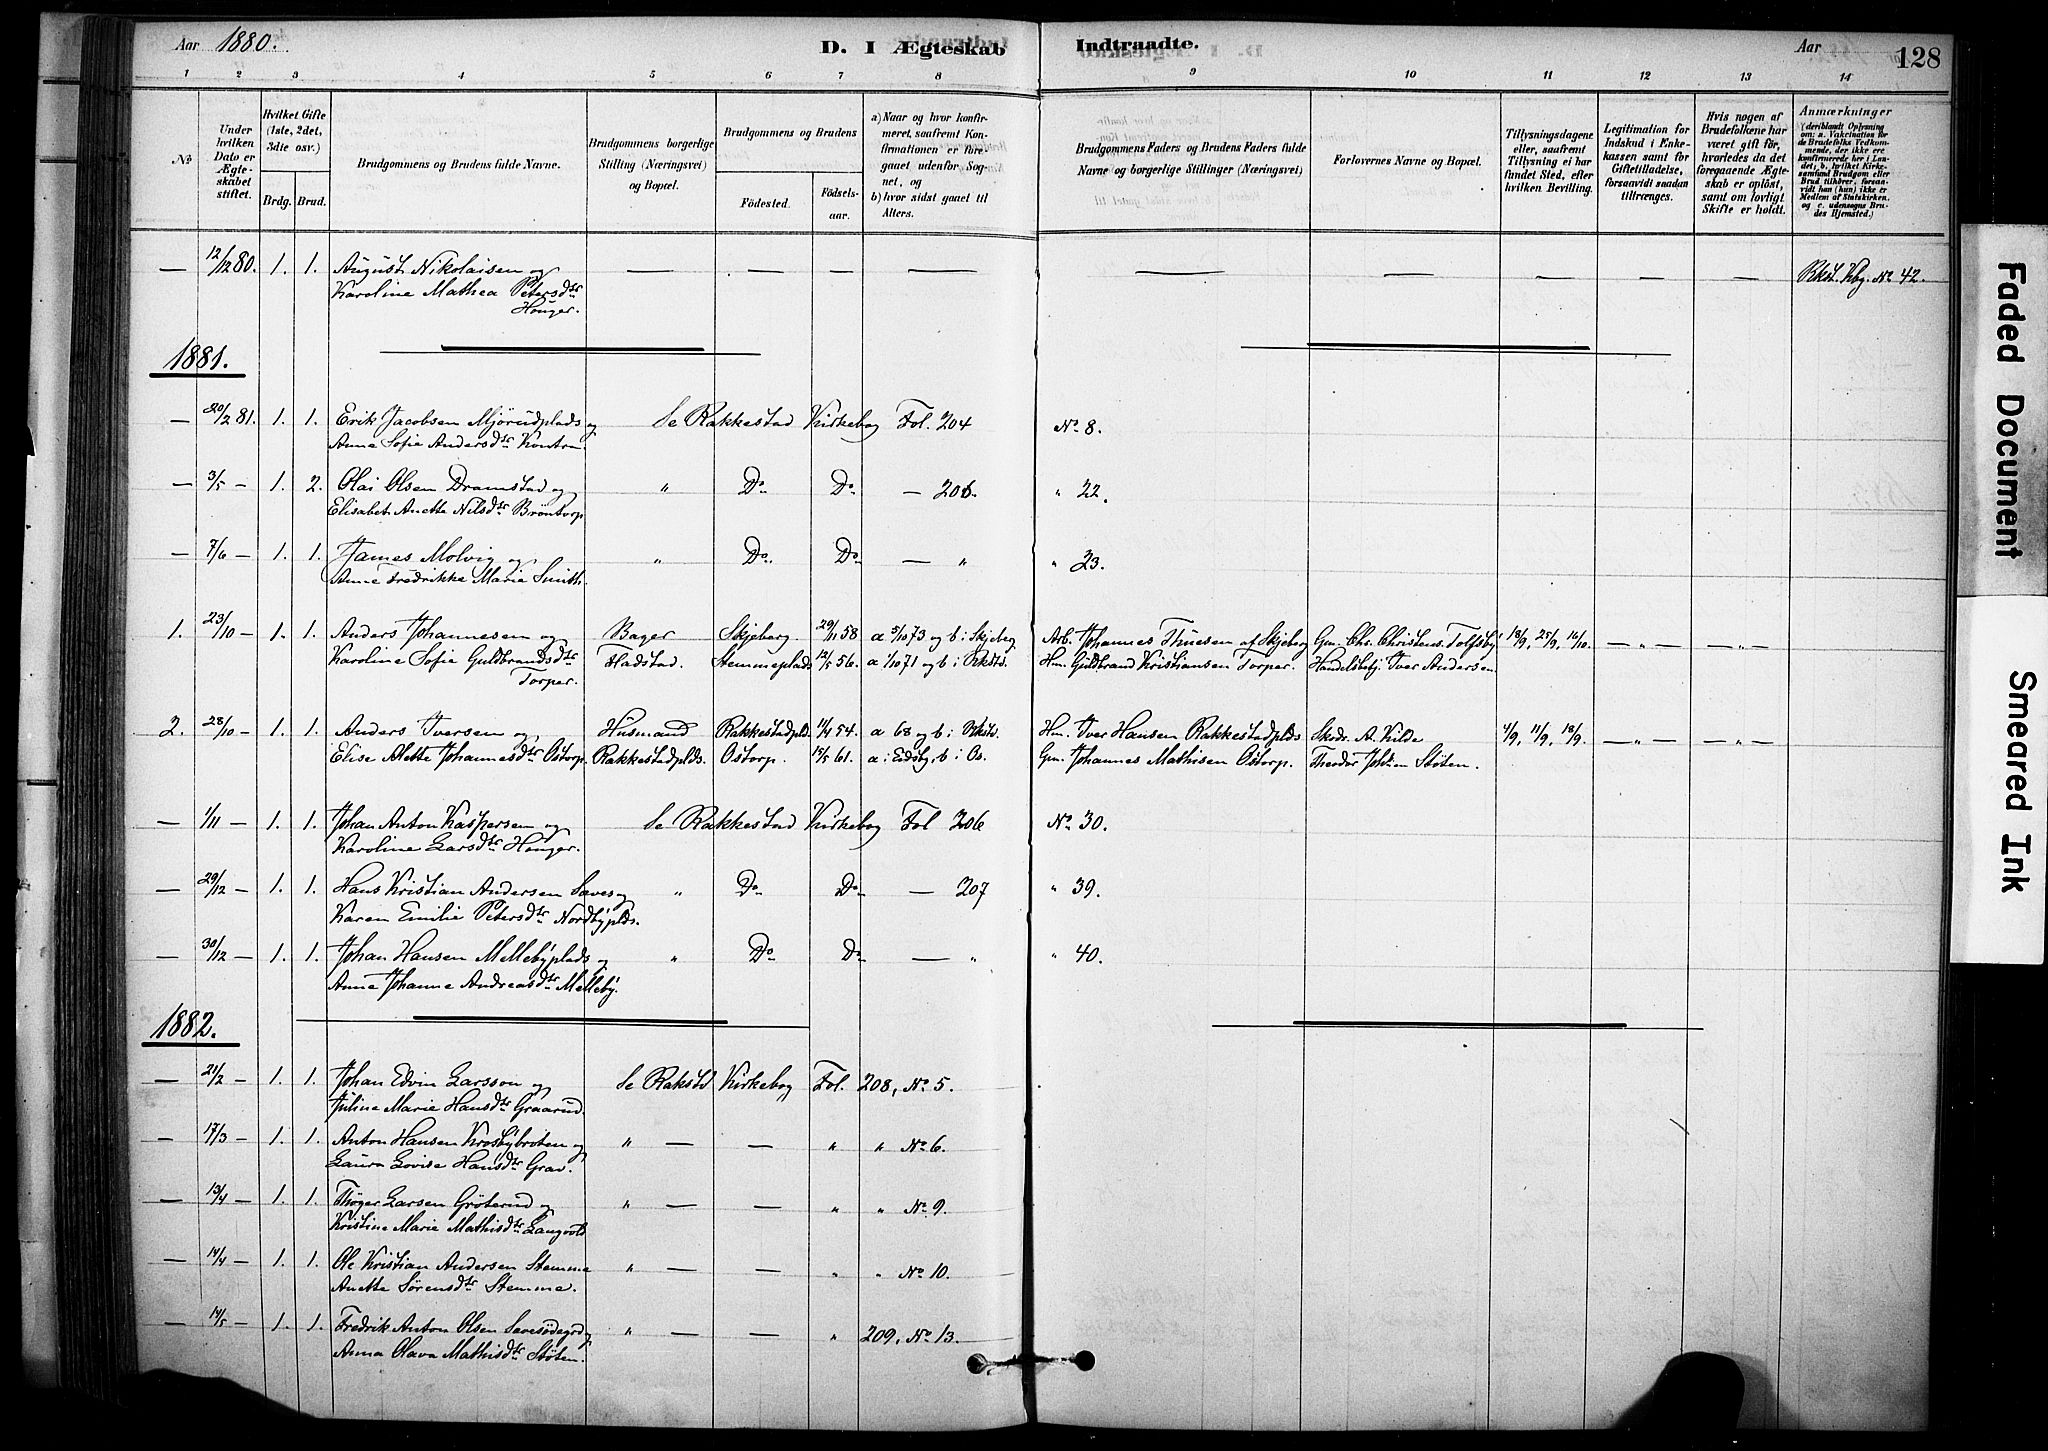 Aar 1880. D. I Ægteskab Indtraadte. Aar 128
1 2 3 4 5 6 7 8 9 10 11 12 13 14
No
Under hvilken Dato er Ægteskabet stiftet.
Hvilket Gifte (1ste, 2det, 3dte osv.)
Brdg. Brud.
Brudgommens og Brudens fulde Navne.
Brudgommens borgerlige Stilling (Næringsvei) og Bopæl.
Brudgommens og Brudens
Födested. Födselsaar.
a) Naar og hvor konfirmeret, saafremt Konfirmationen er foregaaet udenfor Sognet, og
b) hvor sidst gaaet til Alters.
Brudgommens Faders og Brudens Faders fulde Navne og borgerlige Stillinger (Næringsvei)
Forlovernes Navne og Bopæl.
Tillysningsdagene eller, saafremt Tillysning ei har fundet Sted, efter hvilken Bevilling.
Legitimation for Indskud i Enkekassen samt for Giftetilladelse, forsaavidt saadan tiltrænges.
Hvis nogen af Brudefolkene har været gift før, hvorledes da det foregaaende Ægteskab er oplöst, samt om lovligt Skifte er holdt.
Anmærkninger (deriblandt Oplysning om: a. Vakcination for de Brudefolks Vedkommende, der ikke ere konfirmerede her i Landet; b. hvilket Kirkesamfund Brudgom eller Brud tilhörer, forsaavidt han (hun) ikke er Medlem af Statskirken, og c. udensogns Brudes Hjemsted.)
— 12/12 80. 1. 1. August Nikolaisen og — — — — — — — — — Rkst. Kbg. No 42.
Karoline Mathea Petersdtr
Honger.
1881.
— 20/2 81. 1. 1. Erik Jacobsen Mjörudplads og Se Rakkestad Kirkebog Fol. 204 No 8.
Anne Sofie Andersdtr Kontra.
— 3/5 — 1. 2. Olai Olsen Dramstad og " Do Do — 206. " 22.
Elisabet Anette Nilsdtr Bröntorp
— 7/6 — 1. 1. James Molvig og " Do. Do — " " 23.
Anne Fredrikke Marie Smith.
1. 23/10 — 1. 1. Anders Johannesen og Bager Skjeberg 29/11 58 a 5/10 73 og b i Skjeberg Arb. Johannes Thuesen af Skjeberg Gm. Chr. Christens. Tolfsby 18/9, 25/9, 16/10. — " — — " —
Karoline Sofie Guldbrandsdtr Fladstad. Stemmeplads 12/5 56. a 1/10 71 og b i Rkstd. Hm. Guldbrand Kristiansen Torper. Handelsbetj. Iver Andersen
Torper.
2. 28/10 — 1. 1. Anders Iversen og Husmand Rakkestadpld. 11/4 54. a 68 og b i Rkstd. Hm. Iver Hansen Rakkestadplds Skodr. A. Kilde 4/9, 11/9, 18/9. — " — — " —
Elise Alette Johannesdtr Ostorp. Rakkestadplds. Ostorp. 15/5 61. a i Eidsbg, b i Os. Gm. Johannes Mathisen Ostorp. Theodor Johsen Stöten.
— 1/11 — 1. 1. Johan Anton Kaspersen og Se Rakkestad Kirkebog Fol 206 No 30.
Karoline Larsdtr Honger.
— 29/12 — 1. 1. Hans Kristian Andersen Saves og " Do Do — 207 " 39.
Karen Emilie Petersdtr Nordbyplds.
— 30/12 — 1. 1. Johan Hansen Mellebyplads og " Do Do — " " 40.
Anne Johanne Andreasdtr Melleby.
1882.
— 21/2 — 1. 1. Johan Edvin Larsson og Se Rakstd Kirkebog Fol. 208, No 5.
Juline Marie Hansdtr Graarud.
— 17/3 — 1. 1. Anton Hansen Krosbybroten og " — — " " No 6.
Laura Lovise Hansdtr Grav.
— 13/4 — 1. 1. Thöger Larsen Gröterud og " — — " " No 9.
Kristine Marie Mathisdtr Langvold
— 14/4 — 1. 1. Ole Kristian Andersen Stemme " — — " " No 10.
Anette Sörensdtr Stemme.
— 14/5 — 1. 1. Fredrik Anton Olsen Savesödegrd og " — — " 209, No 13.
Anna Olava Mathisdtr Stöten.
Faded Document
Smeared Ink